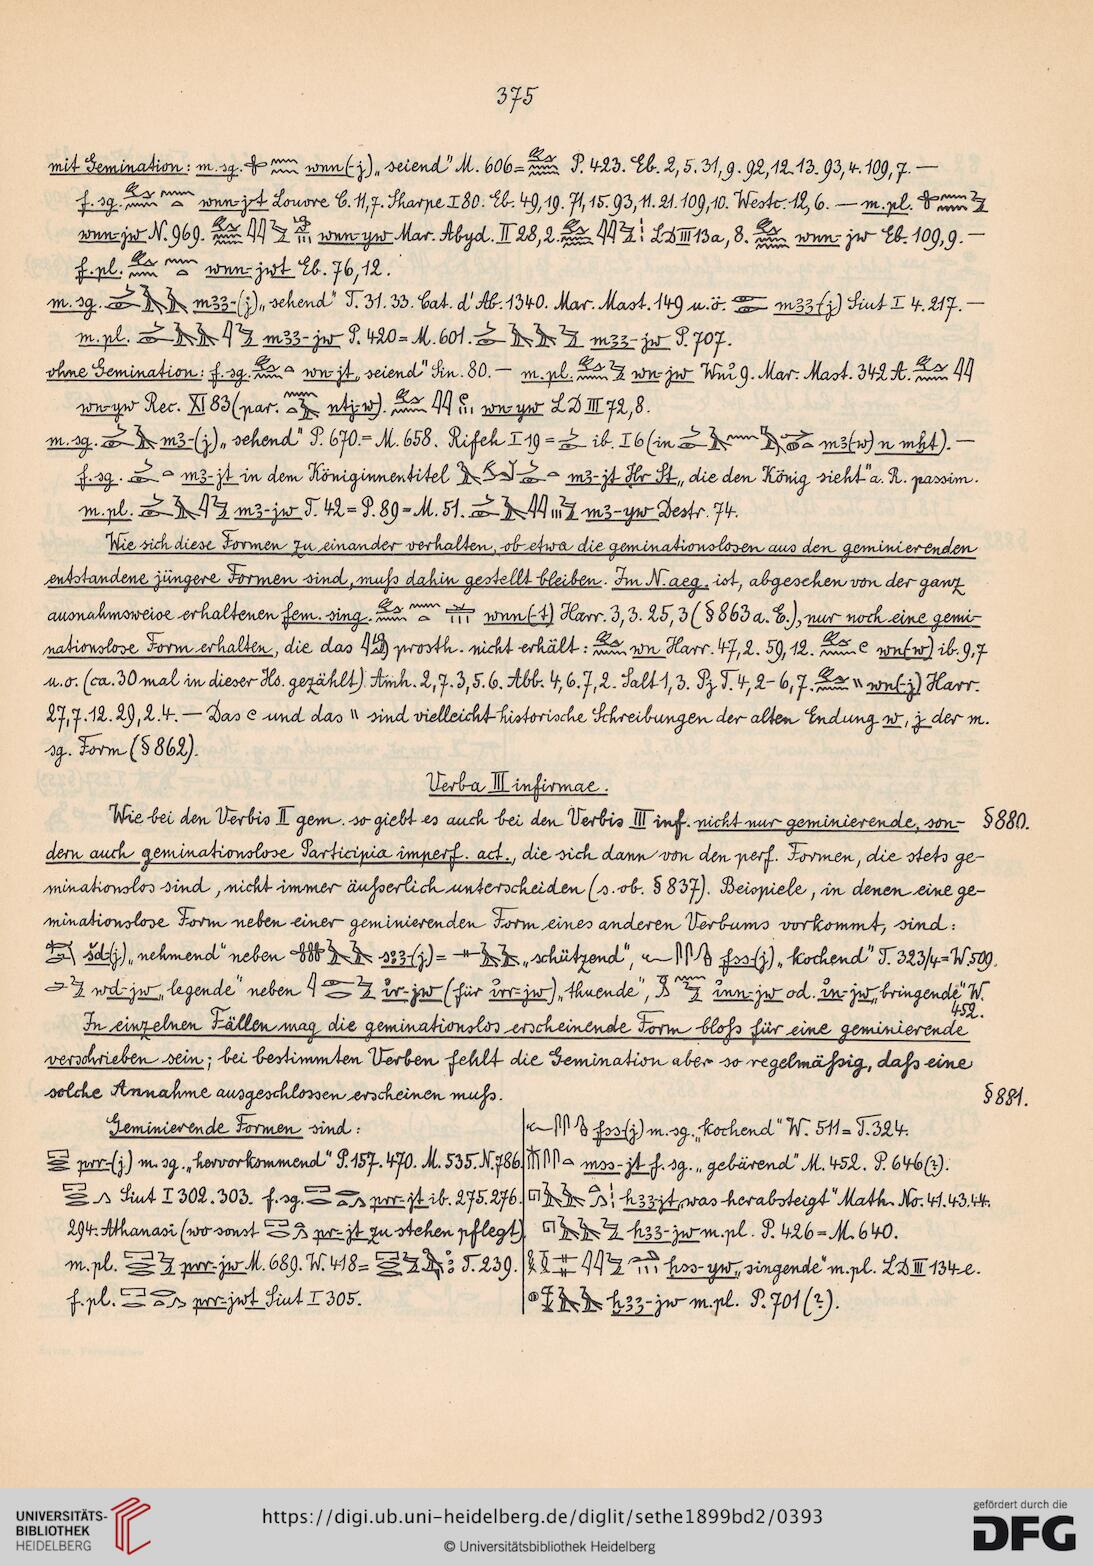 375
mit Gemination: m. sg. wnn(-j) „seiend" M. 606= P. 423. Eb. 2,5. 31,9. 92,12.13. 93,4. 109,7. —
f. sg. wnn-jt Louvre C. 11,7. Sharpe I 80. Eb. 49,19. 71,15. 93,11.21. 109,10. Westc. 12,6. — m. pl.
wnn-jw N. 969. wnn-yw Mar. Abyd. II 28,2. LD III 13a, 8. wnn-jw Eb. 109,9. —
f. pl. wnn-jwt Eb. 76,12.
m. sg. mꜣꜣ-(j) „sehend" T. 31. 33. Cat. d'Ab. 1340. Mar. Mast. 149 u. ö. mꜣꜣ-(j) Siut I 4. 217. —
m. pl. mꜣꜣ-jw P. 420 = M. 601. mꜣꜣ-jw P. 707.
ohne Gemination: f. sg. wn-jt „seiend" Sin. 80. — m. pl. wn-jw Wnỉ 9. Mar. Mast. 342 A.
wn-yw Rec. XI 83 (par. ntj-w). wn-yw LD III 72,8.
m. sg. mꜣ-(j) „sehend" P. 670. = M. 658. Rifeh I 19 = ib. I 6 (in mꜣ(w) n mḥt). —
f. sg. mꜣ-jt in dem Königinnentitel mꜣ-jt Ḥr St „die den König sieht" a. R. passim.
m. pl. mꜣ-jw T. 42 = P. 89 = M. 51. mꜣ-yw Destr. 74.
Wie sich diese Formen zu einander verhalten, ob etwa die geminationslosen aus den geminierenden
entstandene jüngere Formen sind, muſs dahin gestellt bleiben. Im N. aeg. ist, abgesehen von der ganz
ausnahmsweise erhaltenen fem. sing. wnn(-t) Harr. 3,3. 25,3 (§ 863 a. E.), nur noch eine gemi-
nationslose Form erhalten, die das prosth. nicht erhält: wn Harr. 47,2. 59,12. wn(-w) ib. 9,7
u. o. (ca. 30 mal in dieser Hs. gezählt). Amh. 2,7. 3,5.6. Abb. 4,6. 7,2. Salt 1,3. Pj T. 4,2-6,7. wn(-j) Harr.
27,7.12. 29,2.4. — Das und das " sind vielleicht historische Schreibungen der alten Endung w, j der m.
sg. Form (§ 862).
Verba III infirmae.
Wie bei den Verbis II gem. so giebt es auch bei den Verbis III inf. nicht nur geminierende, son- § 880.
dern auch geminationslose Participia imperf. act., die sich dann von den perf. Formen, die stets ge-
minationslos sind, nicht immer äuſserlich unterscheiden (s. ob. § 837). Beispiele, in denen eine ge-
minationslose Form neben einer geminierenden Form eines anderen Verbums vorkommt, sind:
šd-(j) „nehmend" neben sꜣꜣ-(j) = „schützend", fss-(j) „kochend" T. 323/4 = W. 509.
wd-jw „legende" neben ỉr-jw (für ỉrr-jw) „thuende", ỉnn-jw od. ỉn-jw „bringende" W.
452.
In einzelnen Fällen mag die geminationslos erscheinende Form bloſs für eine geminierende
verschrieben sein; bei bestimmten Verben fehlt die Gemination aber so regelmäſsig, daſs eine
solche Annahme ausgeschlossen erscheinen muſs.
§ 881.
Geminierende Formen sind:
prr-(j) m. sg. „hervorkommend" P. 157. 470. M. 535. N. 786.
Siut I 302. 303. f. sg. prr-jt ib. 275. 276.
294. Athanasi (wo sonst pr-jt zu stehen pflegt)
m. pl. prr-jw M. 689. W. 418 = T. 239.
f. pl. prr-jwt Siut I 305.
fss-(j) m. sg. „kochend" W. 511 = T. 324.
mss-jt f. sg. „gebärend" M. 452. P. 646 (?).
hꜣꜣ-jt „was herabsteigt" Math. No. 41. 43. 44.
hꜣꜣ-jw m. pl. P. 426 = M. 640.
ḥss-yw „singende" m. pl. LD III 134e.
ḫꜣꜣ-jw m. pl. P. 701 (?).
UNIVERSITÄTS-
BIBLIOTHEK
HEIDELBERG
https://digi.ub.uni-heidelberg.de/diglit/sethe1899bd2/0393
© Universitätsbibliothek Heidelberg
gefördert durch die
DFG